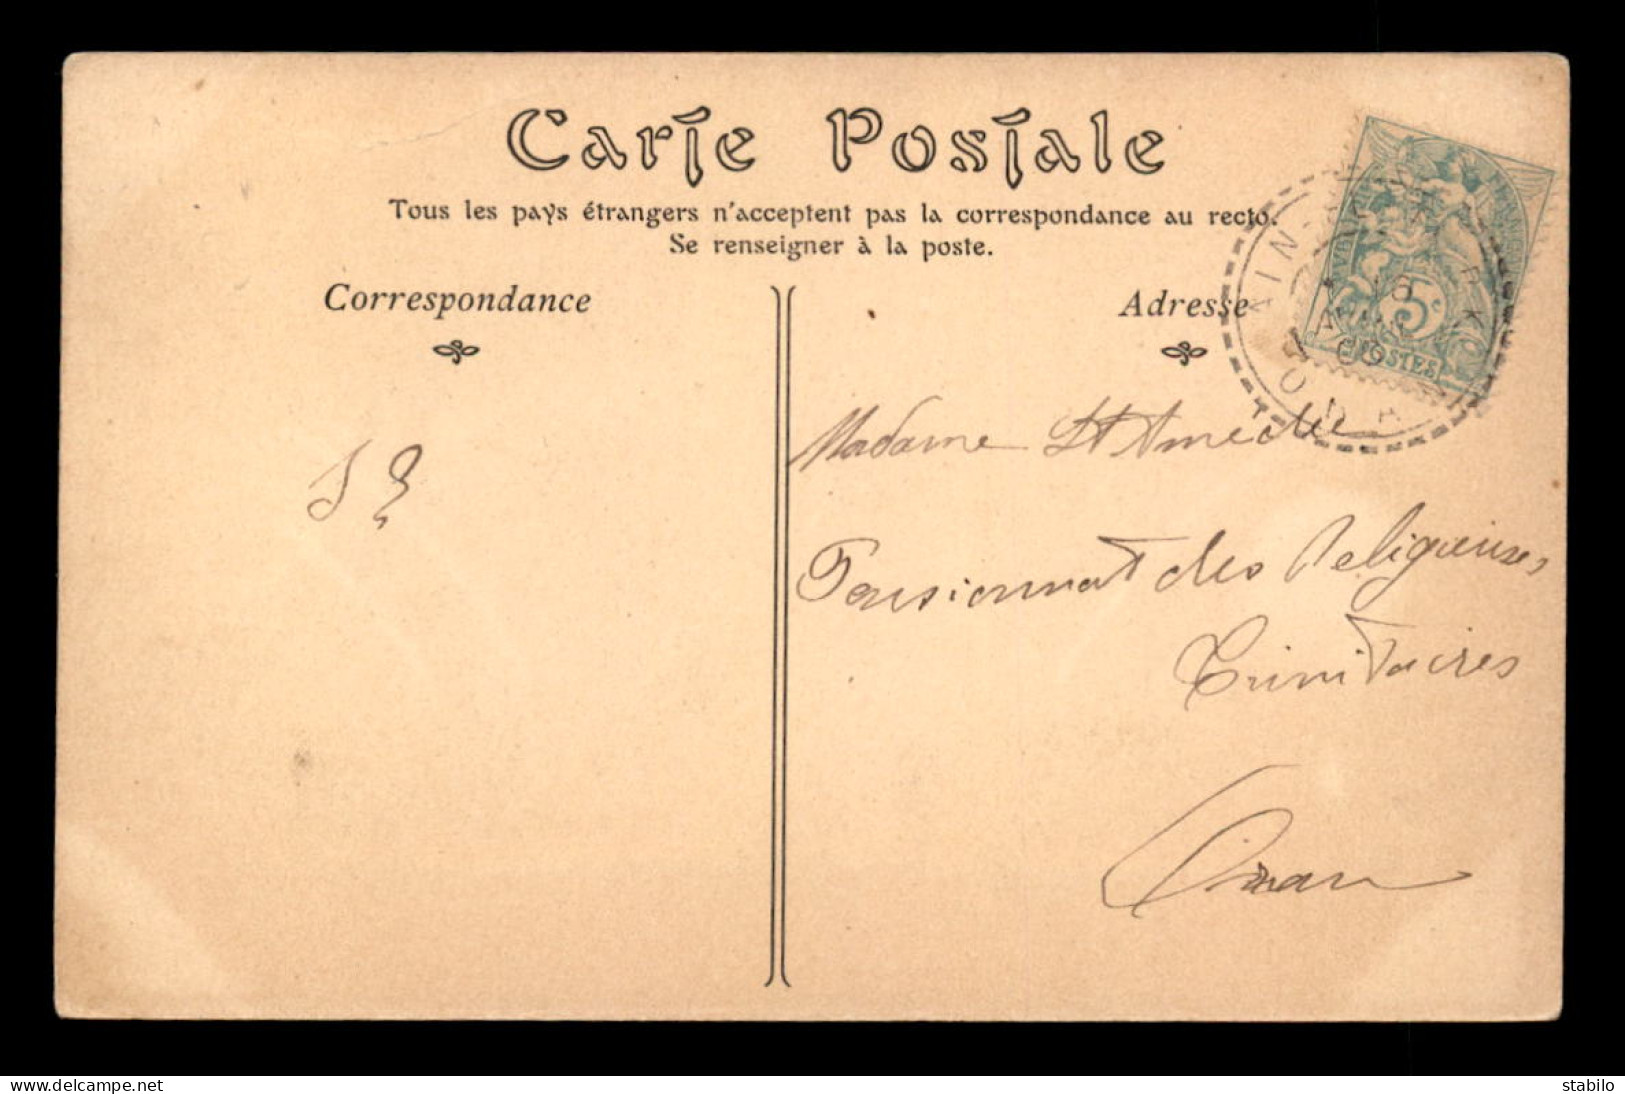 Carte Postale
Tous les pays étrangers n'acceptent pas la correspondance au recto.
Se renseigner à la poste.
Correspondance
Adresse
Madame St Amedée
Pensionnat des Religieuses
Trinitaires
Oran
5c
POSTES
AIN
ORAN
www.delcampe.net
stabilo